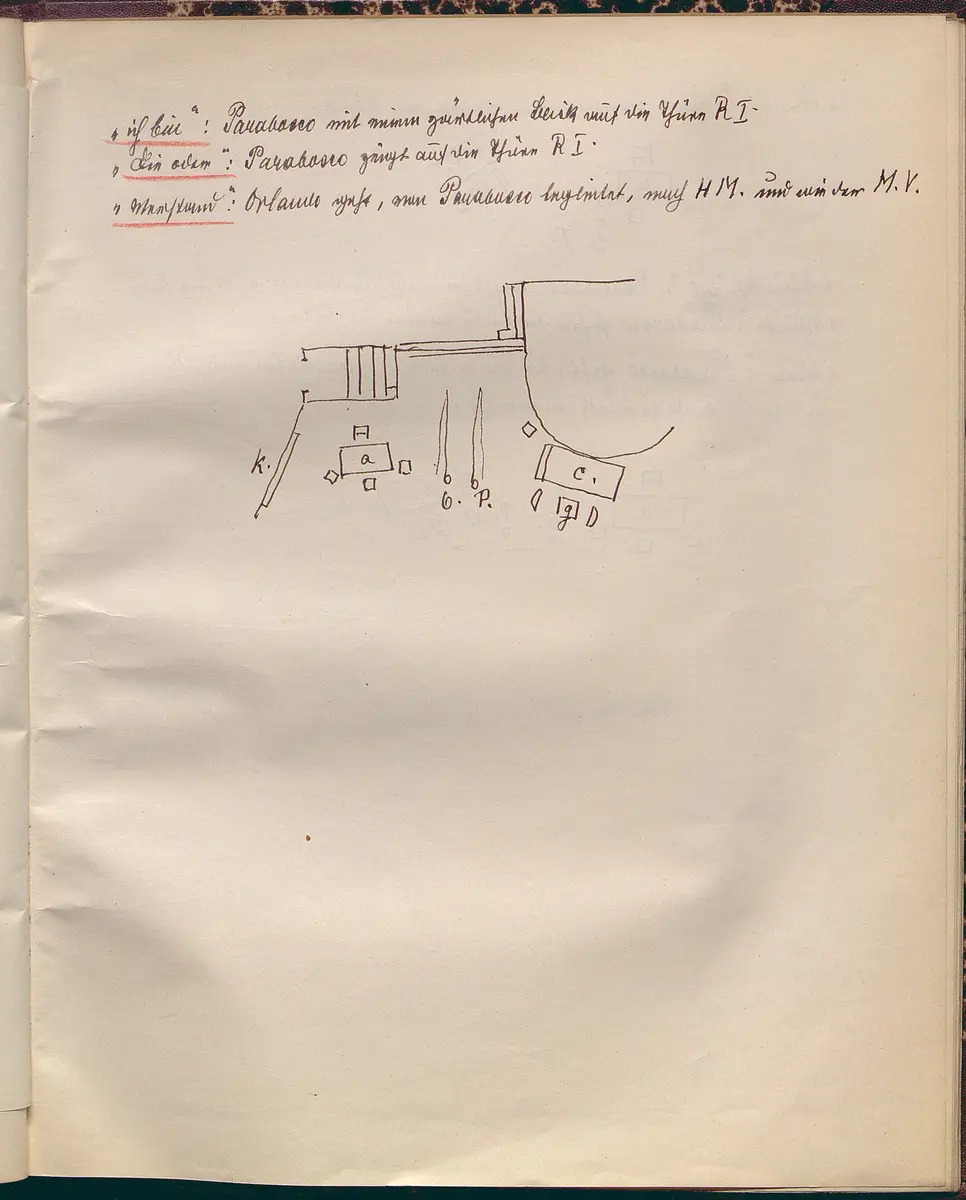 „ich bin“: Parabosco mit einem zärtlichen Blick auf die Thüre R I.
„Sie oder“: Parabosco zeigt auf die Thüre R I.
„Verstand“: Orlando geht, von Parabosco begleitet, nach H M. und wieder M. V.
k.
a
O. P.
c.
g